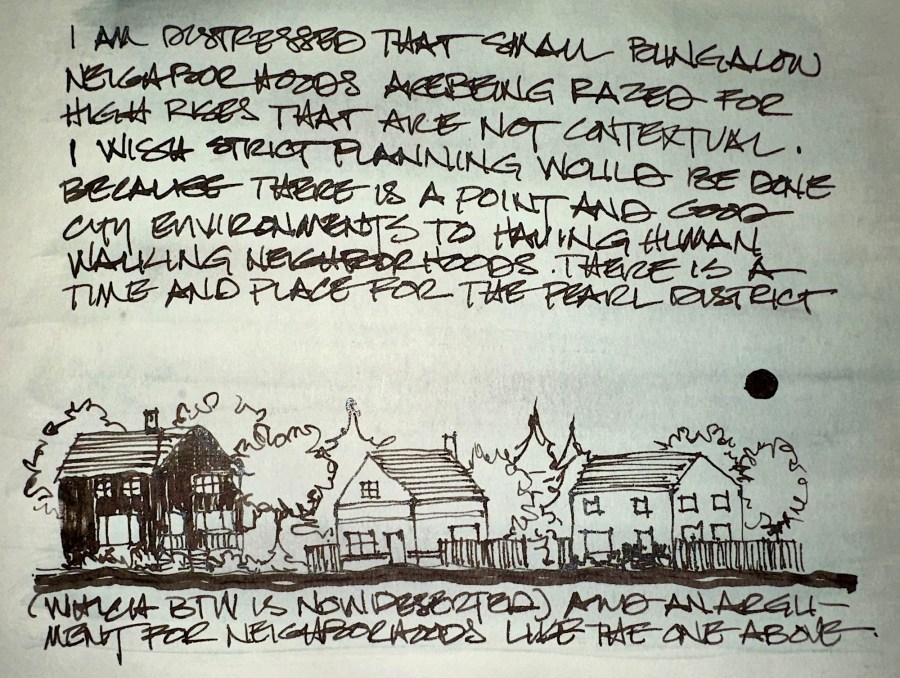 I AM DISTRESSED THAT SMALL BUNGALOW
NEIGHBORHOODS ARE BEING RAZED FOR
HIGH RISES THAT ARE NOT CONTEXTUAL.
I WISH STRICT PLANNING WOULD BE DONE
BECAUSE THERE IS A POINT AND GOOD
CITY ENVIRONMENTS TO HAVING HUMAN
WALKING NEIGHBORHOODS. THERE IS A
TIME AND PLACE FOR THE PEARL DISTRICT
(WHICH BTW IS NOW DESERTED) AND AN ARGU-
MENT FOR NEIGHBORHOODS LIKE THE ONE ABOVE.